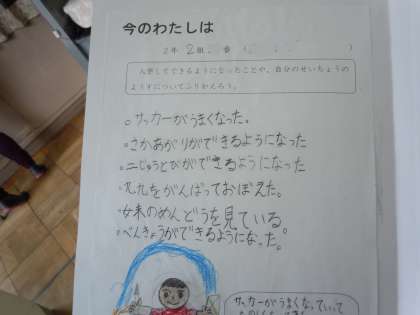 今のわたしは
2年 2組 番 (       )
入学してできるようになったことや、自分のせいちょうの
ようすについてふりかえろう。
○サッカーがうまくなった。
○さかあがりができるようになった
○二じゅうとびができるようになった
○九九をがんばっておぼえた。
○妹のめんどうを見ている。
○べんきょうができるようになった。
サッカーがうまくなっていって